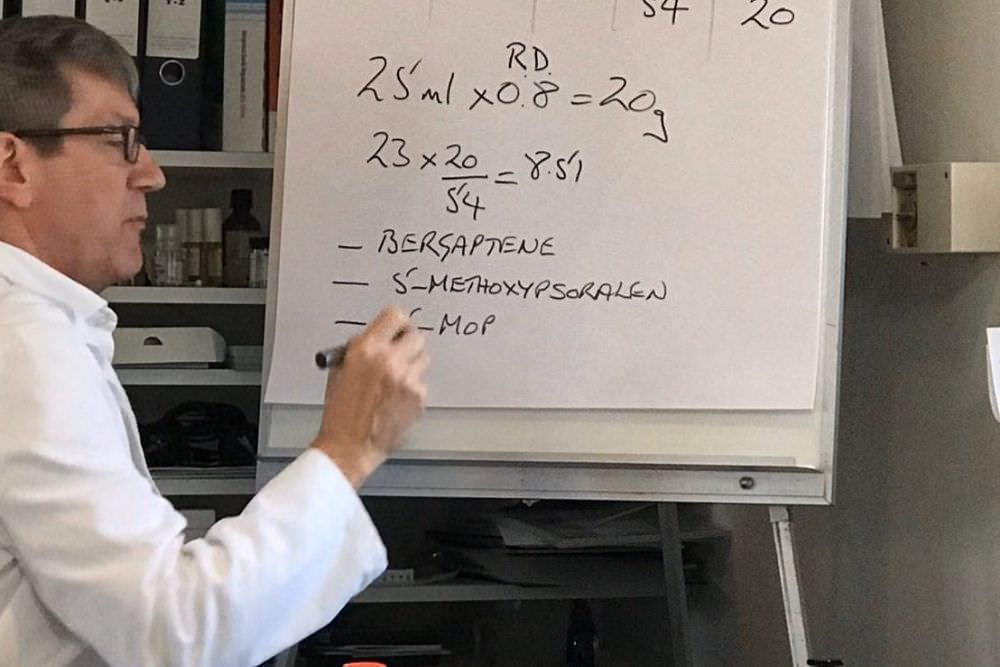 54 20
R.D.
25ml x 0.8 = 20g
23 x 20/54 = 8.51
– BERGAPTENE
– 5-METHOXYPSORALEN
– 5-MOP